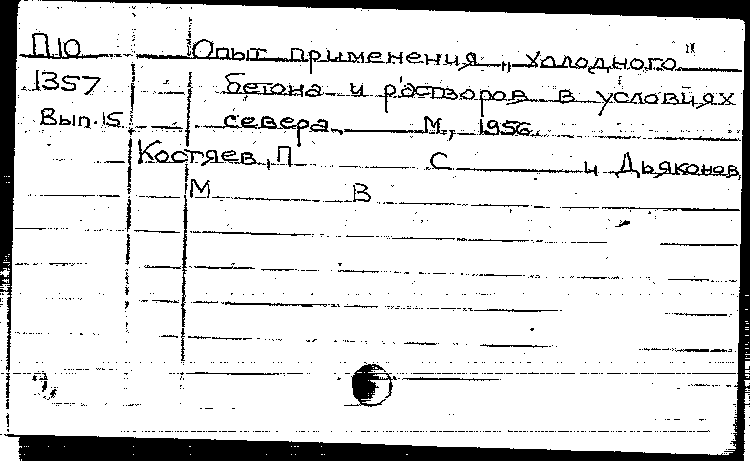 П10 Опыт применения „холодного"
1357 бетона и растворов в условиях
Вып.15 севера. М., 1956.
Костяев, П С и Дьяконов,
М В